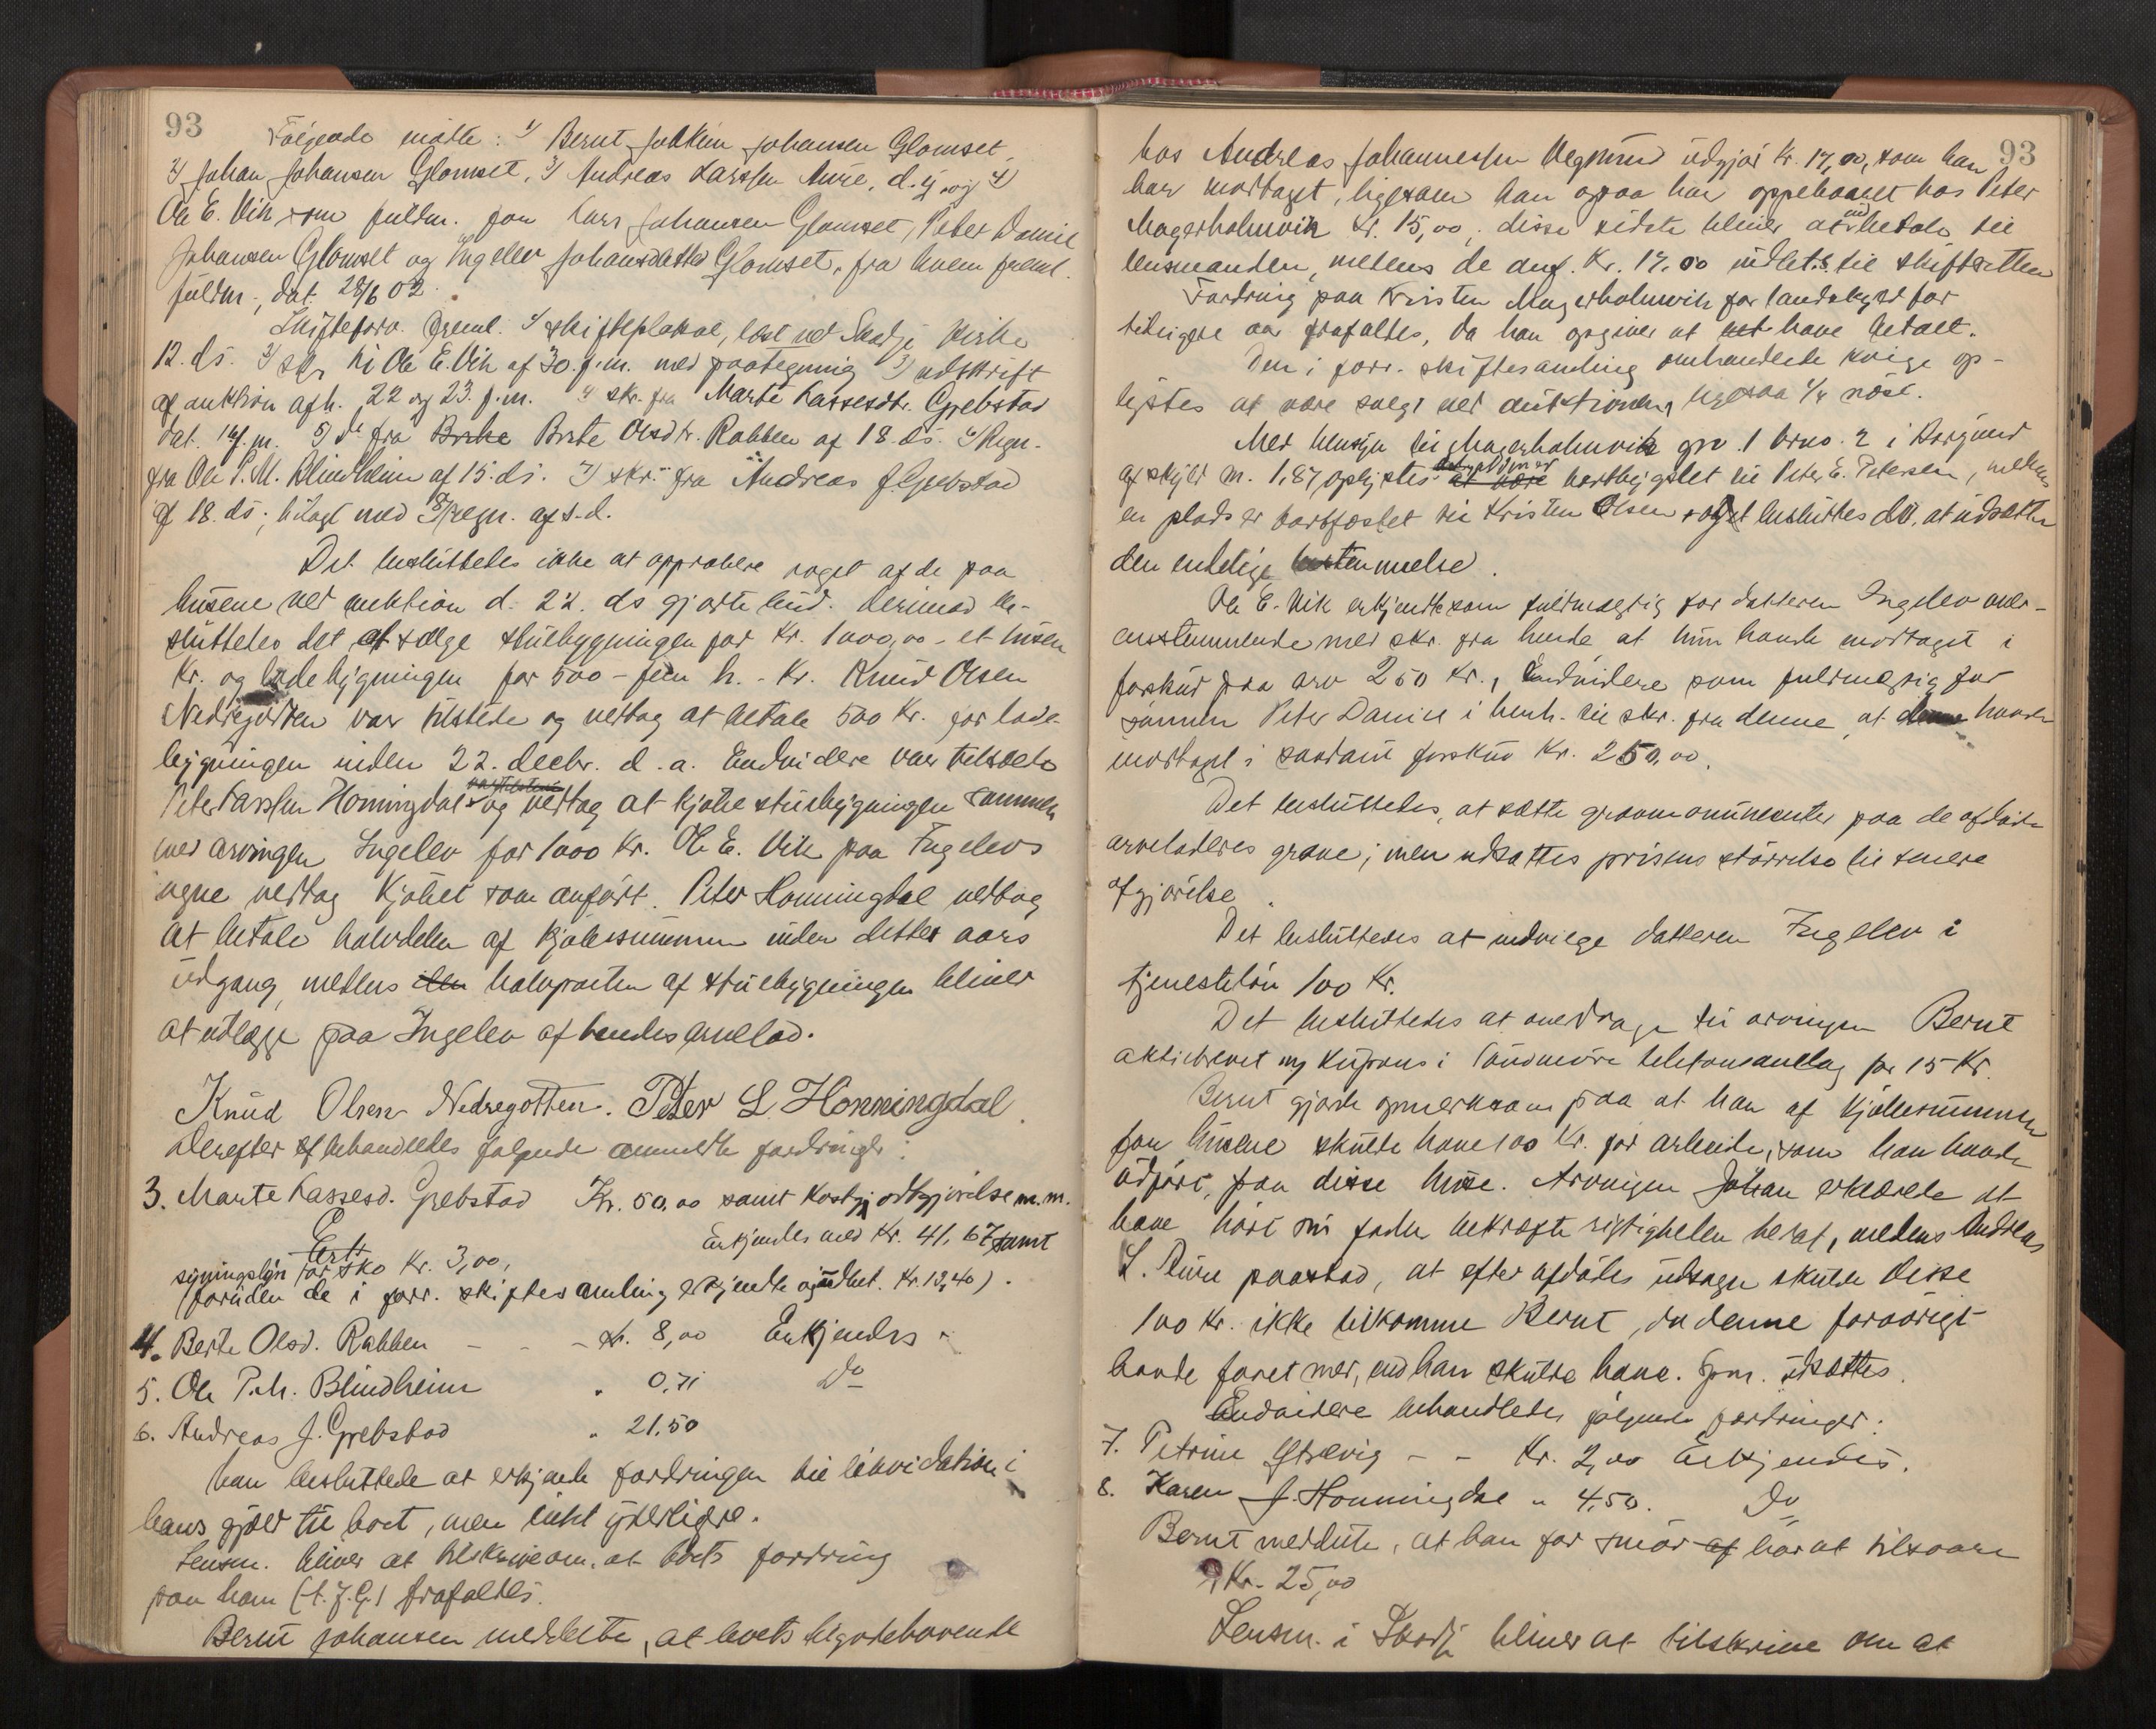 93
Følgende mødte: 1/ Bernt Joakim Johansen Glomset,
2/ Johan Johansen Glomset, 3/ Andreas Larssen Aure, d. y. og 4/
Ole E. Vik som fuldm. for Lars Johansen Glomset, Peter Daniel
Johansen Glomset og Ingelev Johansdatter Glomset, fra hvem freml.
fuldm., dat. 28/6 02.
Skifteforv. freml. 1/ skifteplakat, læst ved Skodje kirke
12. ds. 2/ skr. til Ole E. Vik af 30. f.m. med paategning 3/ udskrift
af auktion afh. 22 og 23. f.m. 4/ skr. fra Marte Lassesdtr. Grebstad
dat. f.m. 5/ do fra Berte Olsdtr. Rabben af 18. ds. 6/ Regn.
fra Ole P. M. Blindheim af 15. ds. 7/ skr. fra Andreas J. Grebstad
af 18. ds., bilagt med 8/ regn. af s.d.
Det besluttedes ikke at approbere noget af de paa
husene ved auktion d. 22. ds gjorte bud. Derimod be-
sluttedes det at sælge stuebygningen for Kr. 1000,00 - et tusen
Kr. og ladebygningen for 500 - fem h. - Kr. Knud Olsen
Nedregotten var tilstede og vedtog at betale 500 Kr. for lade-
bygningen inden 22. decbr. d. a. Endvidere var tilstede
Peter Larssen Honningdal og vedtog at kjøbe stuebygningen sammen
med arvingen Ingelev for 1000 Kr. Ole E. Vik paa Ingelevs
vegne vedtog kjøbet som anført. Peter Honningdal vedtog
at betale halvdelen af kjøbesummen inden dettes aars
udgang, medens den halvparten af stuebygningen bliver
at udlægge paa Ingelev af hendes arvelod.
Knud Olsen Nedregotten. Peter L Honningdal.
Derefter behandledes følgende anmeldte fordringer:
3. Marte Lassesd. Grebstad Kr. 50,00 samt kostgjodtgjørelse m. m.
Erkjendes med Kr. 41,67 samt
syningsløn for sko Kr. 3,00,
(foruden de i forr. skiftesamling erkjendte og udbet. Kr. 13,40).
4. Berte Olsd. Rabben - - - Kr. 8,00 Erkjendes
5. Ole P. M. Blindheim " 0,71 Do
6. Andreas J. Grebstad " 21.50
Man besluttede at erkjende fordringen til likvidation i
hans gjæld til boet, men intet yderligere.
Lensm. bliver at tilskrive om, at boets fordring
paa ham (A. J. G.) frafaldes.
Bernt Johansen meddelte, at boets tilgodehavende
93
hos Andreas Johannessen Vegsund udgjør Kr. 17,00, som han
har modtaget, ligesom han ogsaa har oppebaaret hos Peter
Magerholmvik Kr. 15,00, disse sidste bliver at indbetale til
lensmanden, medens de anf. Kr. 17.00 udlet.s til skifteretten
Fordring paa Kristen Magerholmvik for landskyld for
tidligere aar frafaldes, da han opgiver at have betalt.
Den i forr. skiftesamling omhandlede kvige op-
lystes at være solgt ved auktionen, ligesaa 1/4 nøst.
Med hensyn til Magerholmvik gno. 1 brno. 2 i Borgund
af skyld M. 1,87 oplystes at være bortbygslet til Peter E. Petersen, medens
en plads er bortfæstet til Kristen Olsen og besluttedes da, at udsætte
den endelige bestemmelse.
Ole E. Vik erkjendte som fuldmægtig for datteren Ingelev over-
ensstemmende med skr. fra hende, at hun havde modtaget i
forskud paa arv 250 Kr., Endvidere som fuldmægtig for
sønnen Peter Daniel i henh. til skr. fra denne, at denne havde
modtaget i saadant forskud Kr. 250,00.
Det besluttedes, at sætte gravmonumenter paa de afdøde
arveladeres grave; men udsattes prisens størrelse til senere
afgjørelse.
Det besluttedes at indvilge datteren Ingelev i
tjenesteløn 100 Kr.
Det besluttedes at overdrage til arvingen Bernt
aktiebrevet og kupons i Søndmøre telefonanlæg for 15 Kr.
Bernt gjorde opmerksom paa at han af kjøbesummen
for husene skulde have 100 Kr. for arbeide, som han havde
udført, paa disse huse. Arvingen Johan erklærede at
have hørt sin fader bekræfte rigtigheden heraf, medens Andreas
L. Aure paastod, at efter afdødes udsagn skulde disse
100 Kr. ikke tilkomme Bernt, da denne forøvrigt
havde faaet mer, end han skulde have. Spm. udsættes.
Endvidere behandledes følgende fordringer:
7. Petrine Strævig - - Kr. 2,00 Erkjendes.
8. Karen J. Honningdal " 4,50. Do
Bernt meddelte, at han for smør af har at tilsvare
Kr. 25,00
Lensm. i Skodje bliver at tilskrive om at